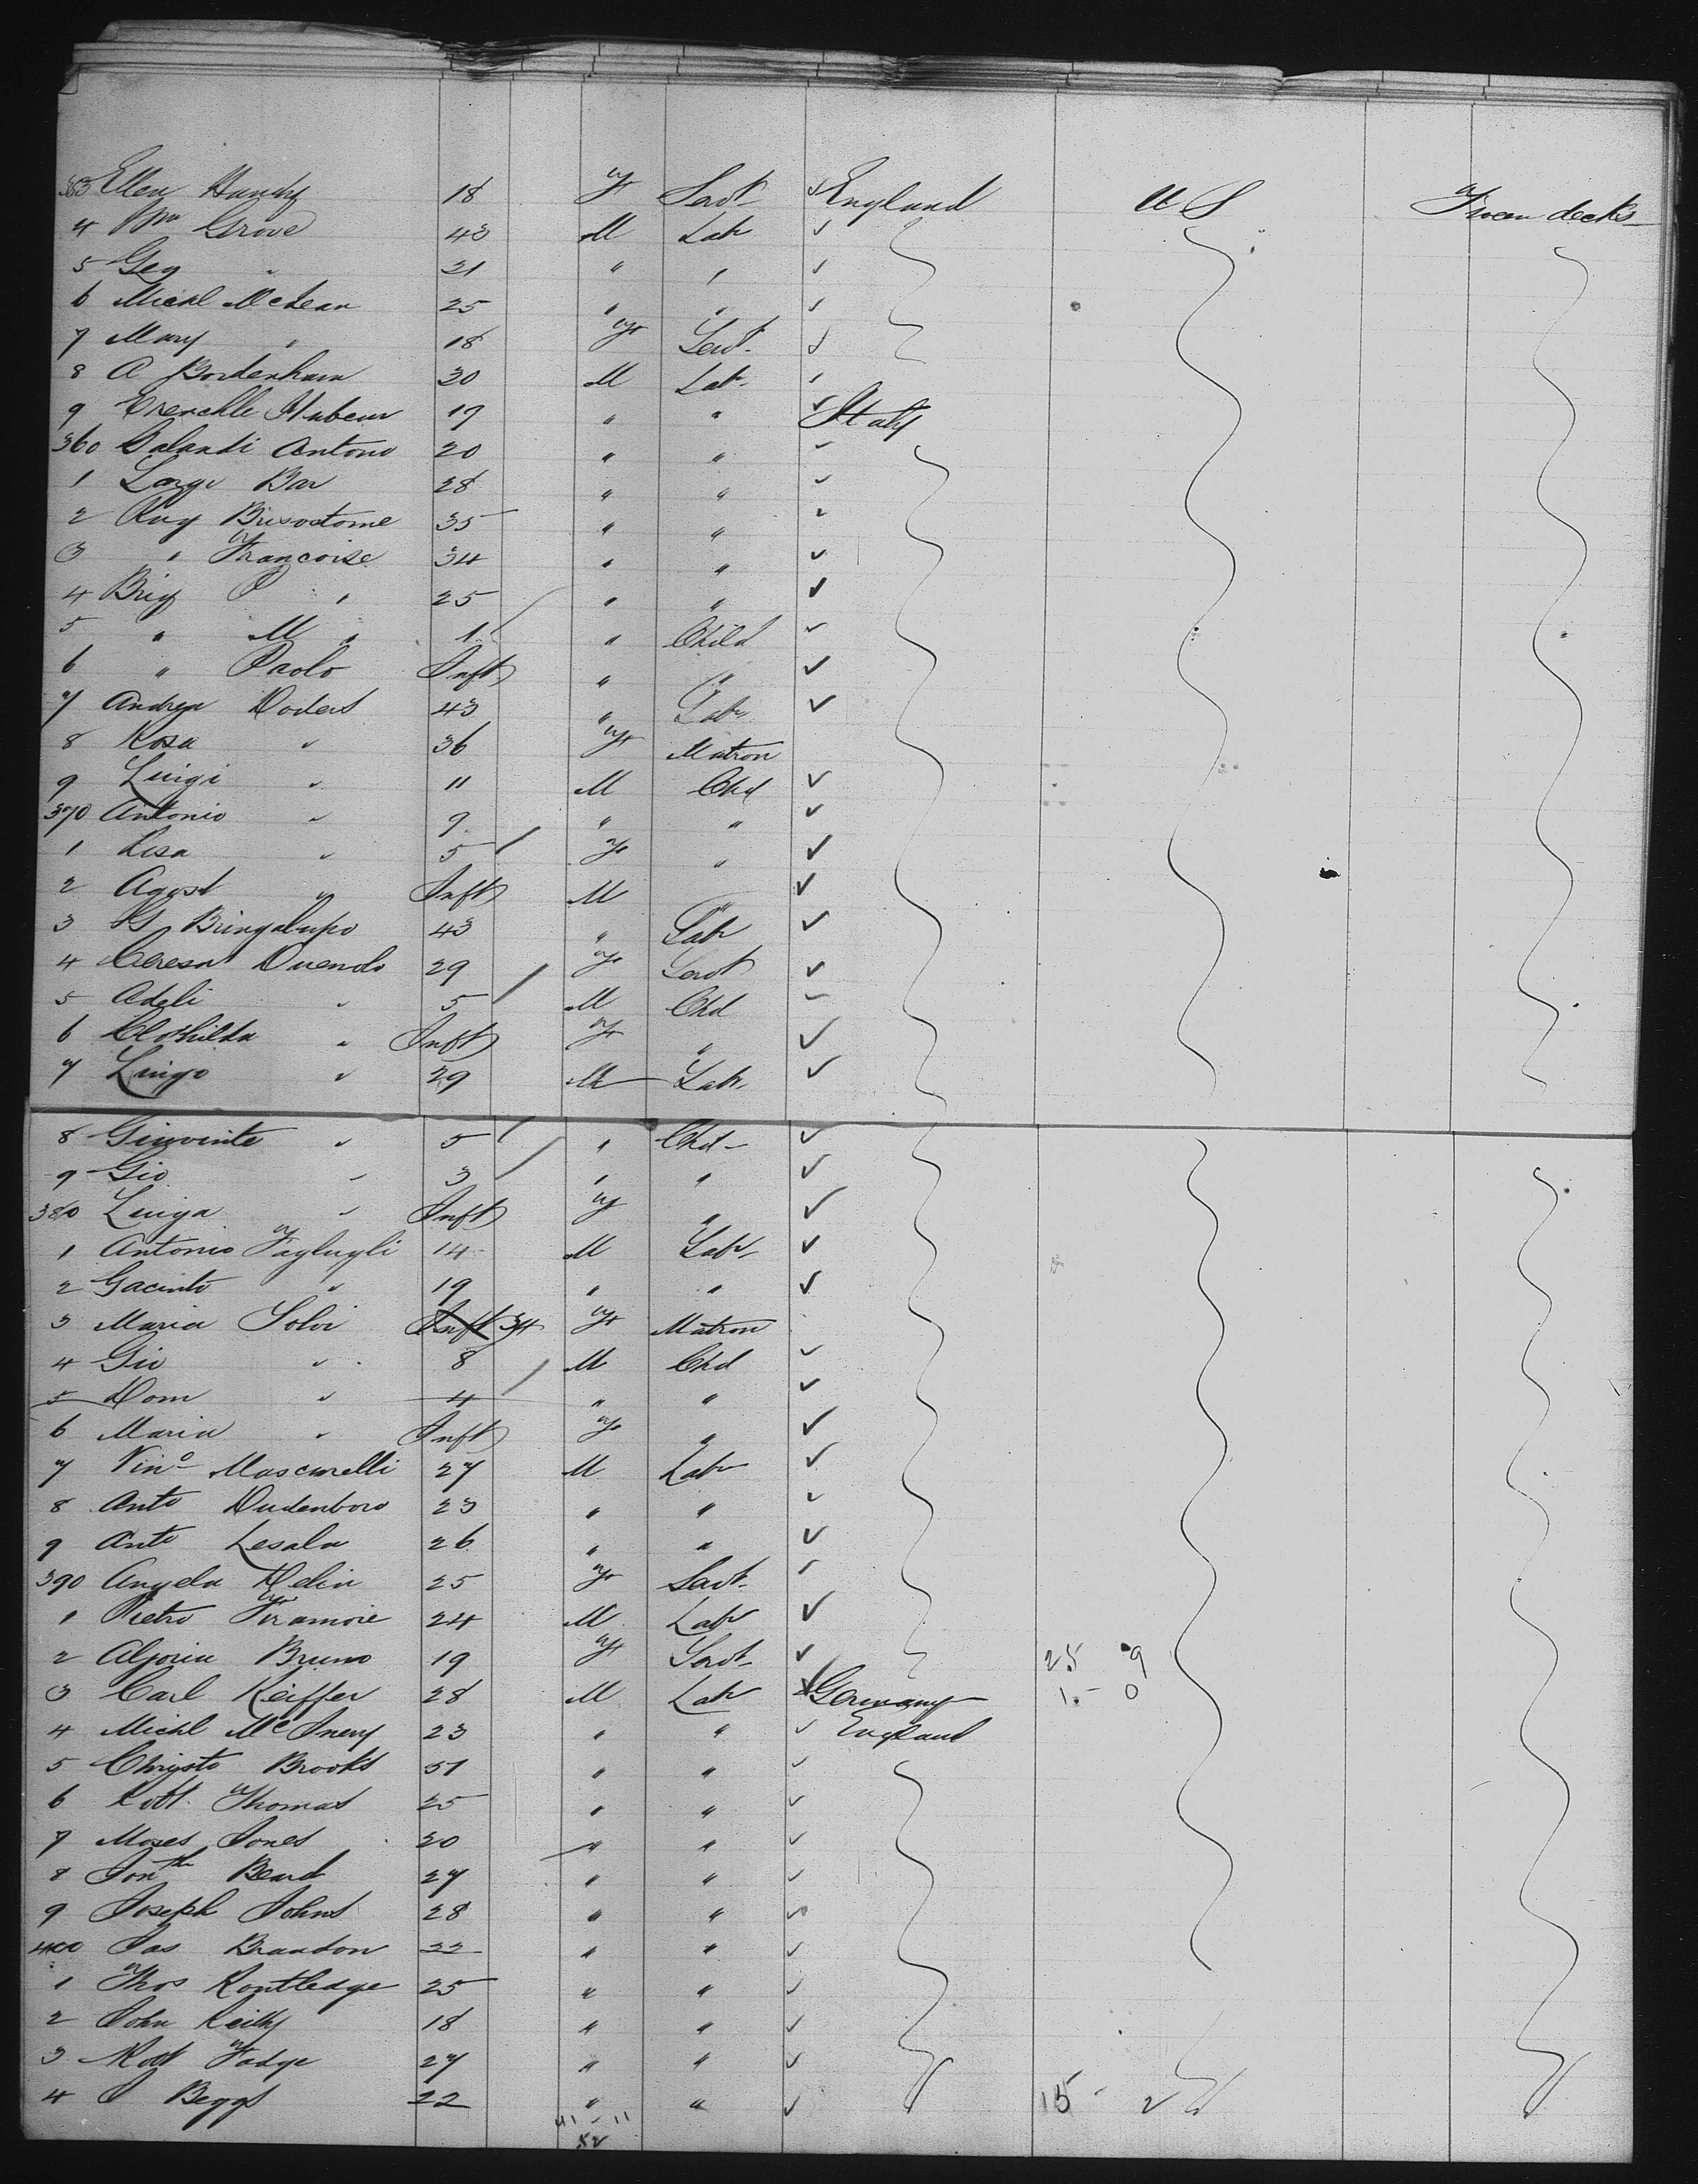 353 Ellen Handy 18 F Servt England U S Tween decks
4 Wm Grove 43 M Labr
5 Geo " 21 " "
6 Michl McLean 25 " "
7 Mary " 18 F Servt
8 A Bordenham 30 M Labr
9 19 " " Italy
360 Galandi Antono 20 " "
1 Bar 28 " "
2 35 " "
3 " Francoise 34 " "
4 Brig P " 25 " "
5 " M " 1 " Child
6 " Paolo Inft " "
7 Andrea 43 " Labr
8 Rosa " 36 F Matron
9 Luigi " 11 M Chd
370 Antonio " 9 " "
1 Lisa " 5 F "
2 Agost " Inft M "
3 G 43 " Labr
4 29 F Servt
5 Adeli " 5 M Chd
6 Clothilda " Inft F "
7 Luigo " 29 M Labr
8 " 5 " Chd
9 Gio " 3 " "
380 Luiga " Inft F "
1 Antonio 14 M Labr
2 Gacinto " 19 " "
3 Maria Solvi Inft 34 F Matron
4 Gio " 8 M Chd
5 Dom " 4 " "
6 Maria " Inft F "
7 Vino Mascarelli 27 M Labr
8 Anto Dudenboro 23 " "
9 Anto Lesala 26 " "
390 Angela Delia 25 F Servt
1 Pietro 24 M Labr
2 Bruno 19 F Servt 25 9
3 Carl Keiffer 28 M Labr Germany 1 - 0
4 Michl McInery 23 " " England
5 Christo Brooks 51 " "
6 Robt Thomas 25 " "
7 Moses Jones 20 " "
8 Jonth Beard 27 " "
9 Joseph Johns 28 " "
400 Jas Brandon 22 " "
1 Thos Routledge 25 " "
2 John Keilly 18 " "
3 Robt Fadge 27 " "
4 J Beggs 22 " " 15 - 2
41 - 11
52